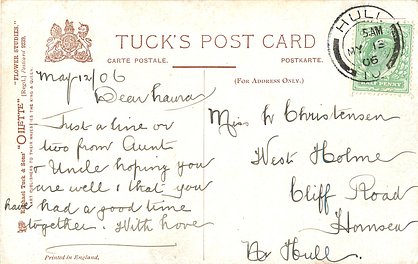 TUCK'S POST CARD
CARTE POSTALE.
POSTKARTE.
(FOR ADDRESS ONLY.)
Raphael Tuck & Sons' "OILETTE" "FLOWER STUDIES"
ART PUBLISHERS TO THEIR MAJESTIES THE KING & QUEEN
HULL
5. AM
MY 13
06
PENNY
May 12/06
Dear Laura
Just a line or
two from Aunt
& Uncle hoping you
are well & that you
have had a good time
together. With love
Printed in England.
Miss L Christensen
West Holme
Cliff Road
Hornsea
Nr Hull.